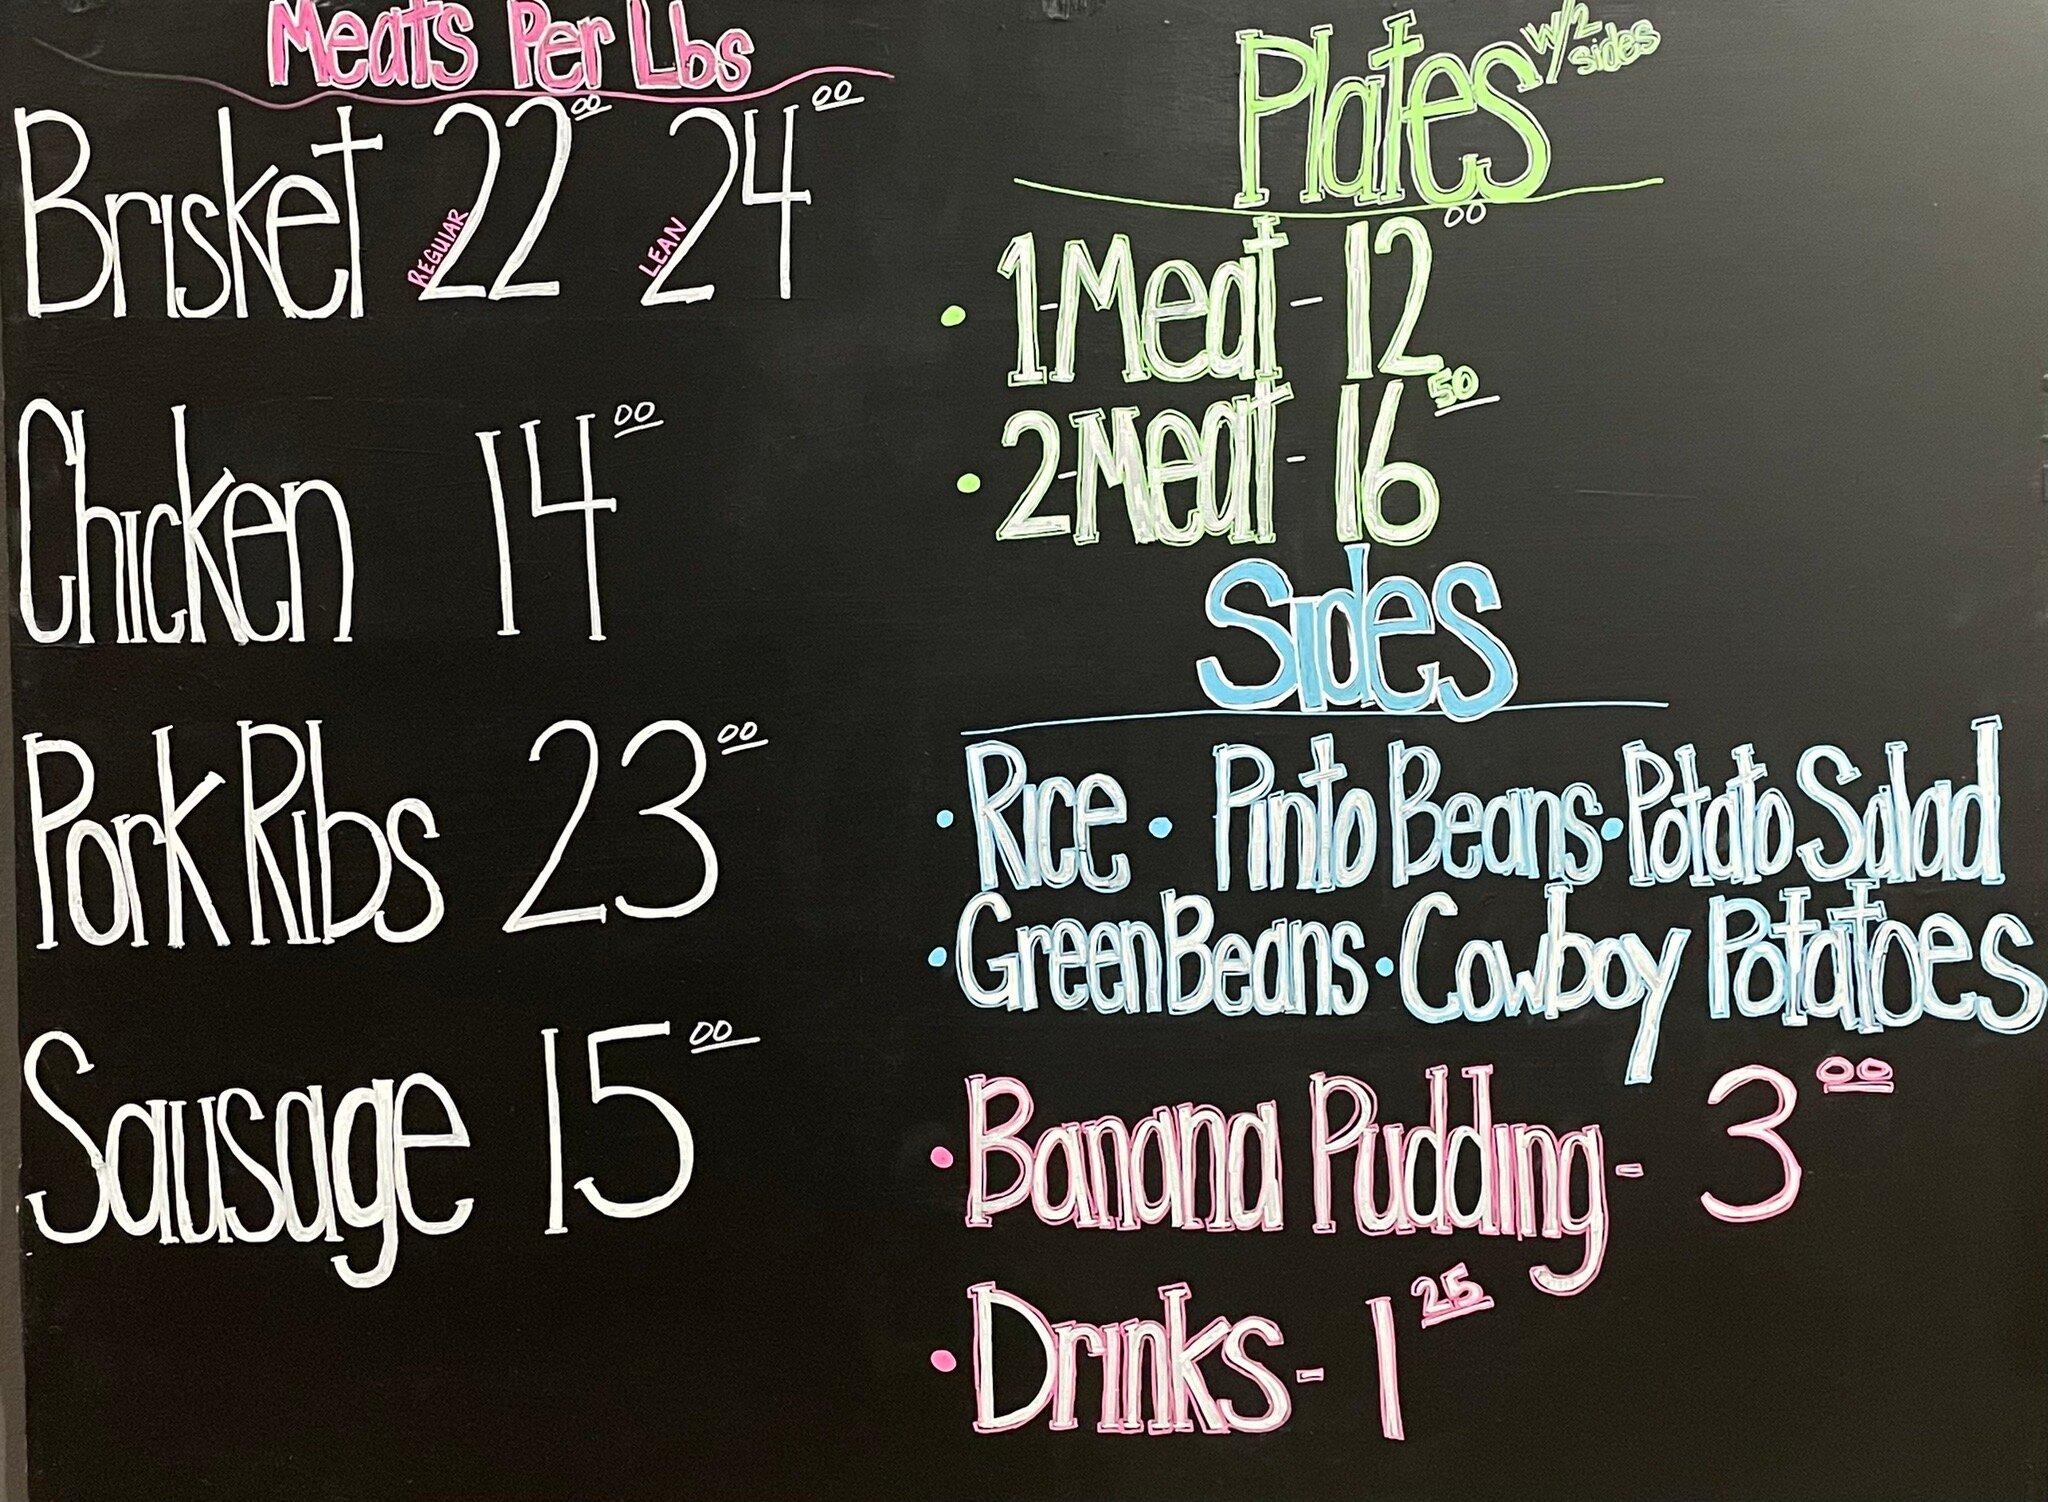 Meats Per Lbs
Brisket REGULAR 22 00 LEAN 24 00
Chicken 14 00
Pork Ribs 23 00
Sausage 15 00
Plates w/2 sides
• 1-Meat - 12 00
• 2-Meat - 16 50
Sides
• Rice • Pinto Beans • Potato Salad
• Green Beans • Cowboy Potatoes
• Banana Pudding - 3 00
• Drinks - 1 25